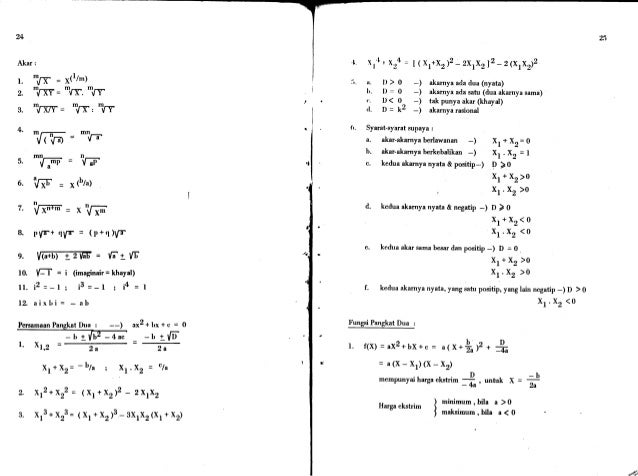 24
Akar :
1. ᵐ√X = X^(1/m)
2. ᵐ√XY = ᵐ√X. ᵐ√Y
3. ᵐ√X/Y = ᵐ√X : ᵐ√Y
4. ᵐ√(ⁿ√a) = ᵐⁿ√a
5. ᵐⁿ√a^mp = ⁿ√a^p
6. ᵃ√x^b = x^(b/a)
7. ⁿ√x^(n+m) = x ⁿ√x^m
8. p√r + q√r = (p+q)√r
9. √(a+b) ± 2√ab = √a ± √b
10. √-1 = i (imaginair = khayal)
11. i² = -1 ; i³ = -1 ; i⁴ = 1
12. a i x b i = - a b
Persamaan Pangkat Dua : --) ax² + bx + c = 0
1. X₁,₂ = (- b ± √b² - 4 ac)/2 a = (- b ± √D)/2 a
X₁ + X₂ = - b/a ; X₁ . X₂ = c/a
2. X₁² + X₂² = (X₁ + X₂)² - 2 X₁X₂
3. X₁³ + X₂³ = (X₁ + X₂)³ - 3X₁X₂ (X₁ + X₂)
25
4. X₁⁴ + X₂⁴ = [ (X₁+X₂)² - 2X₁X₂ ]² - 2 (X₁X₂)²
5. a. D > 0 -) akarnya ada dua (nyata)
b. D = 0 -) akarnya ada satu (dua akarnya sama)
c. D < 0 -) tak punya akar (khayal)
d. D = k² -) akarnya rasional
6. Syarat-syarat supaya :
a. akar-akarnya berlawanan -) X₁ + X₂ = 0
b. akar-akarnya berkebalikan -) X₁ . X₂ = 1
c. kedua akarnya nyata & positip -) D ≥ 0
X₁ + X₂ > 0
X₁ . X₂ > 0
d. kedua akarnya nyata & negatip -) D ≥ 0
X₁ + X₂ < 0
X₁ . X₂ < 0
e. kedua akar sama besar dan positip -) D = 0
X₁ + X₂ > 0
X₁ . X₂ > 0
f. kedua akarnya nyata, yang satu positip, yang lain negatip -) D > 0
X₁ . X₂ < 0
Fungsi Pangkat Dua :
1. f(X) = aX² + bX + c = a (X + b/2a)² + D/-4a
= a (X - X₁) (X - X₂)
mempunyai harga ekstrim D/-4a , untuk X = -b/2a
Harga ekstrim } minimum , bila a > 0
} maksimum , bila a < 0